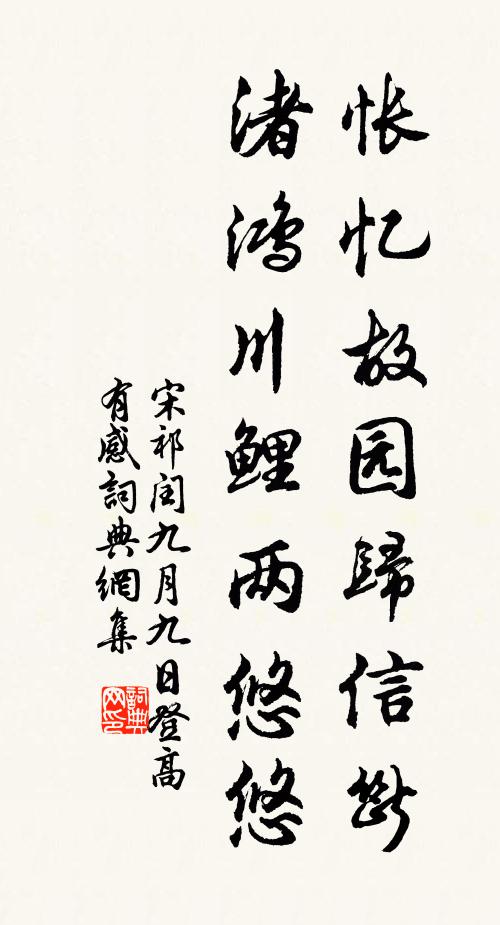 怅忆故园歸信断
渚鸿川鲤两悠悠
宋祁闰九月九日登高
有感詞典網集
詞典
网印